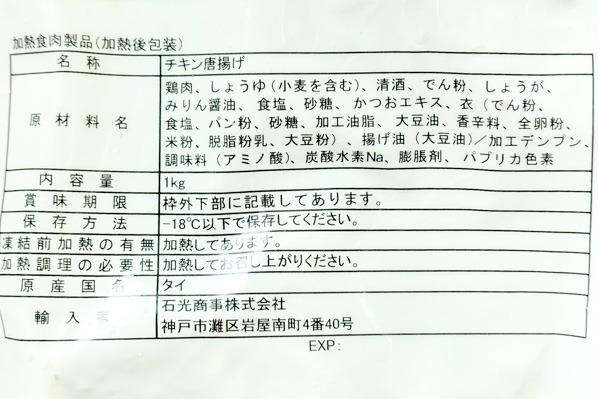 加熱食肉製品(加熱後包装)
名称 チキン唐揚げ
原材料名 鶏肉、しょうゆ(小麦を含む)、清酒、でん粉、しょうが、
みりん醤油、食塩、砂糖、かつおエキス、衣(でん粉、
食塩、パン粉、砂糖、加工油脂、大豆油、香辛料、全卵粉、
米粉、脱脂粉乳、大豆粉)、揚げ油(大豆油)/加工デンプン、
調味料(アミノ酸)、炭酸水素Na、膨脹剤、パプリカ色素
内容量 1kg
賞味期限 枠外下部に記載してあります。
保存方法 -18℃以下で保存してください。
凍結前加熱の有無 加熱してあります。
加熱調理の必要性 加熱してお召し上がりください。
原産国名 タイ
輸入者 石光商事株式会社
神戸市灘区岩屋南町4番40号
EXP: